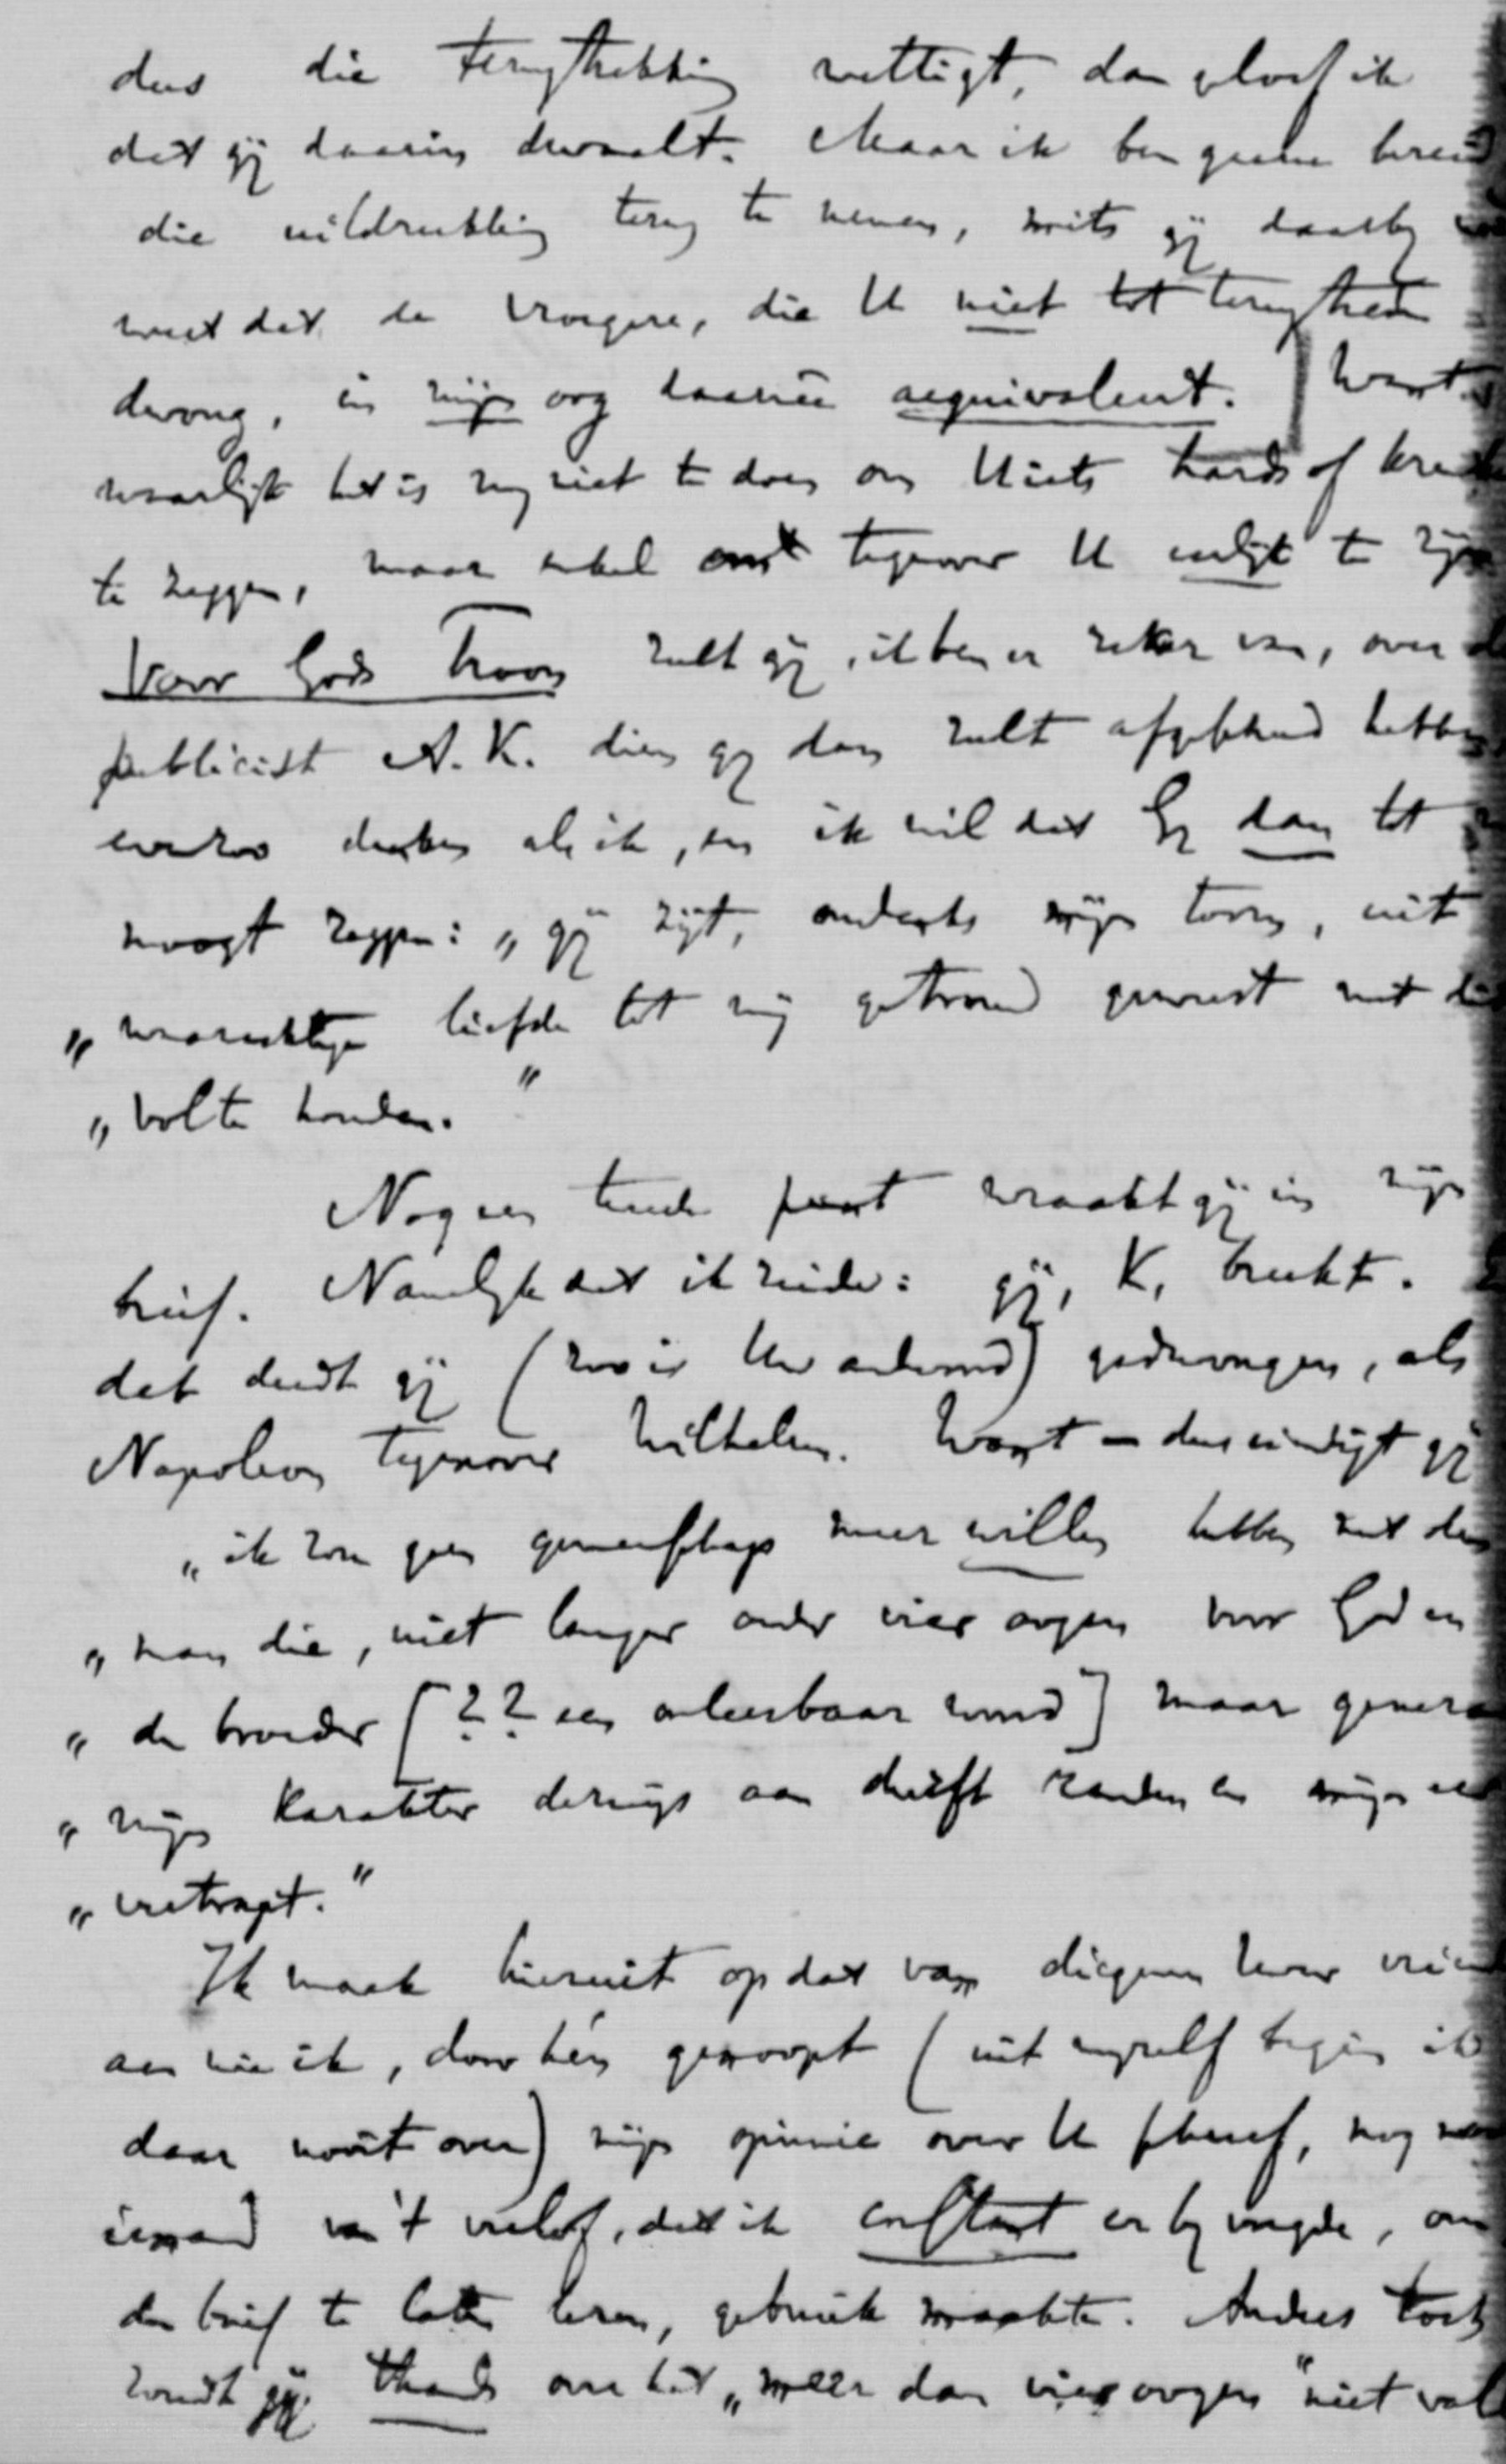 dus die terugtrekking wettigt, dan gloof ik
dat gij daarin dwaalt. Maar ik ben gaarne bereid
die uitdrukking terug te nemen, mits gij daarbij
weet dat de vroegere, die U niet tot terugtreden
dwong, in mijn oog daarmee aequivalent. Want
waarlijk het is mij niet te doen om U iets hards of
te zeggen, maar enkel om tegenover U eerlijk te zijn
Voor Gods troon zult gij, ik ben er zeker van, over d
publicist A. K. dien gij dan zult afgekend hebben
evenzo denken als ik, en ik wil dat Gij dan tot
moogt zeggen: „gij zijt, ondanks mijn toorn, uit
„waarachtige liefde tot mij getrouw geweest met
„vol te houden."
Nog een tweede punt wraakt gij in mijn
brief. Namelijk dat ik zeide: gij, K, breekt.
dat deedt gij (zoo is Uw antwoord) gedwongen, als
Napoleon tegenover Wilhelm. Want – dus eindigt gij
„ik zou geen gemeenschap meer willen hebben met den
„man die, niet langer onder vier oogen voor God en
„de broeder [?? een onleesbaar woord] maar
„mijn karakter derwijs aan durft randen en mijn
„vertrapt."
Ik maak hieruit op dat van diegenen
aan wie ik, door hen genoopt (uit mijzelf begin ik
daar nooit over) mijn opinie over U schreef, nog
iemand van 't verlof, dat ik constant er bij voegde, om
den brief te laten lezen, gebruik maakte. Anders toch
zoudt gij thans over het „meer dan vier oogen" niet